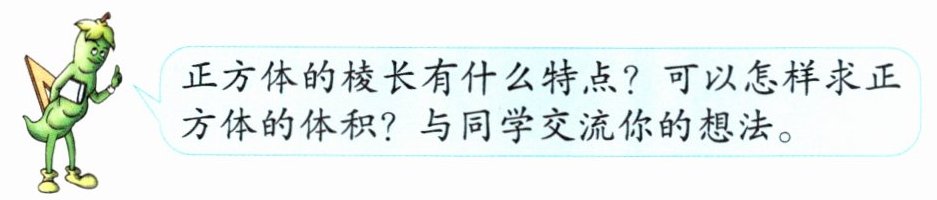 正方体的棱长有什么特点？可以怎样求正
方体的体积？与同学交流你的想法。